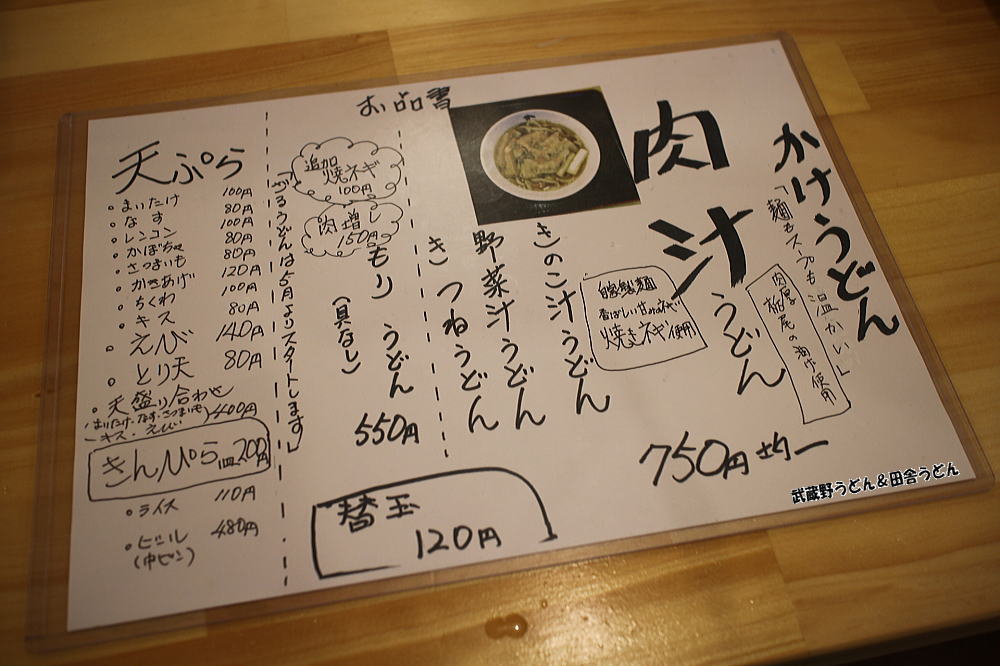 お品書
かけうどん
「麺もスープも温かい」
肉厚
栃尾の油げ使用
肉汁うどん
自家製麺
香ばしい甘みネギ
焼きネギ使用
きのこ汁うどん
野菜汁うどん
きつねうどん
750円均一
追加
焼ネギ
100円
肉増し
150円
もりうどん
(具なし)
550円
「ひるうどんは5月よりスタートします」
替玉
120円
天ぷら
・まいたけ 100円
・なす 80円
・レンコン 100円
・かぼちゃ 80円
・さつまいも 80円
・かきあげ 120円
・ちくわ 100円
・キス 80円
・えび 140円
・とり天 80円
・天盛り合わせ
(まいたけ・なす・さつまいも
キス・えび) 400円
きんぴら 皿 200円
・ライス 110円
・ビール 480円
(中ビン)
武蔵野うどん&田舎うどん